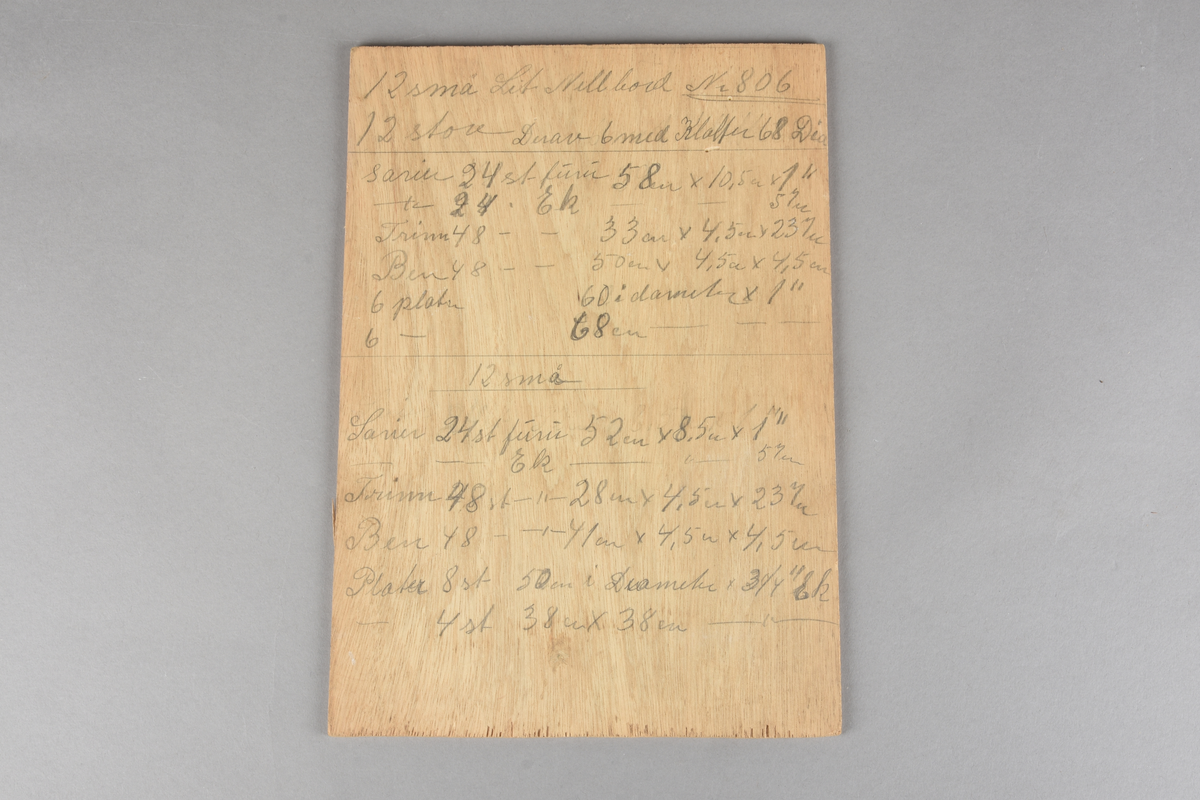 12 små Lit Nellbord Nr 806
12 store Derav 6 med Klaffer 68 Dia
Sarier 24 st furu 58 cm x 10,5 cm x 1"
—"— 24 - Ek — — 5 m/m
Trinn 48 - - 33 cm x 4,5 cm x 23 m/m
Ben 48 - - 50 cm x 4,5 cm x 4,5 cm
6 plater 60 i diameter x 1"
6 — 68 cm — — —
12 små
Sarier 24 st furu 52 cm x 8,5 cm x 1"
— — Ek — — 5 m/m
Trinn 48 st —"— 28 cm x 4,5 cm x 23 m/m
Ben 48 - —"— 41 cm x 4,5 cm x 4,5 cm
Plater 8 st 50 cm i Diameter x 3/4" Ek
— 4 st 38 cm x 38 cm —"—